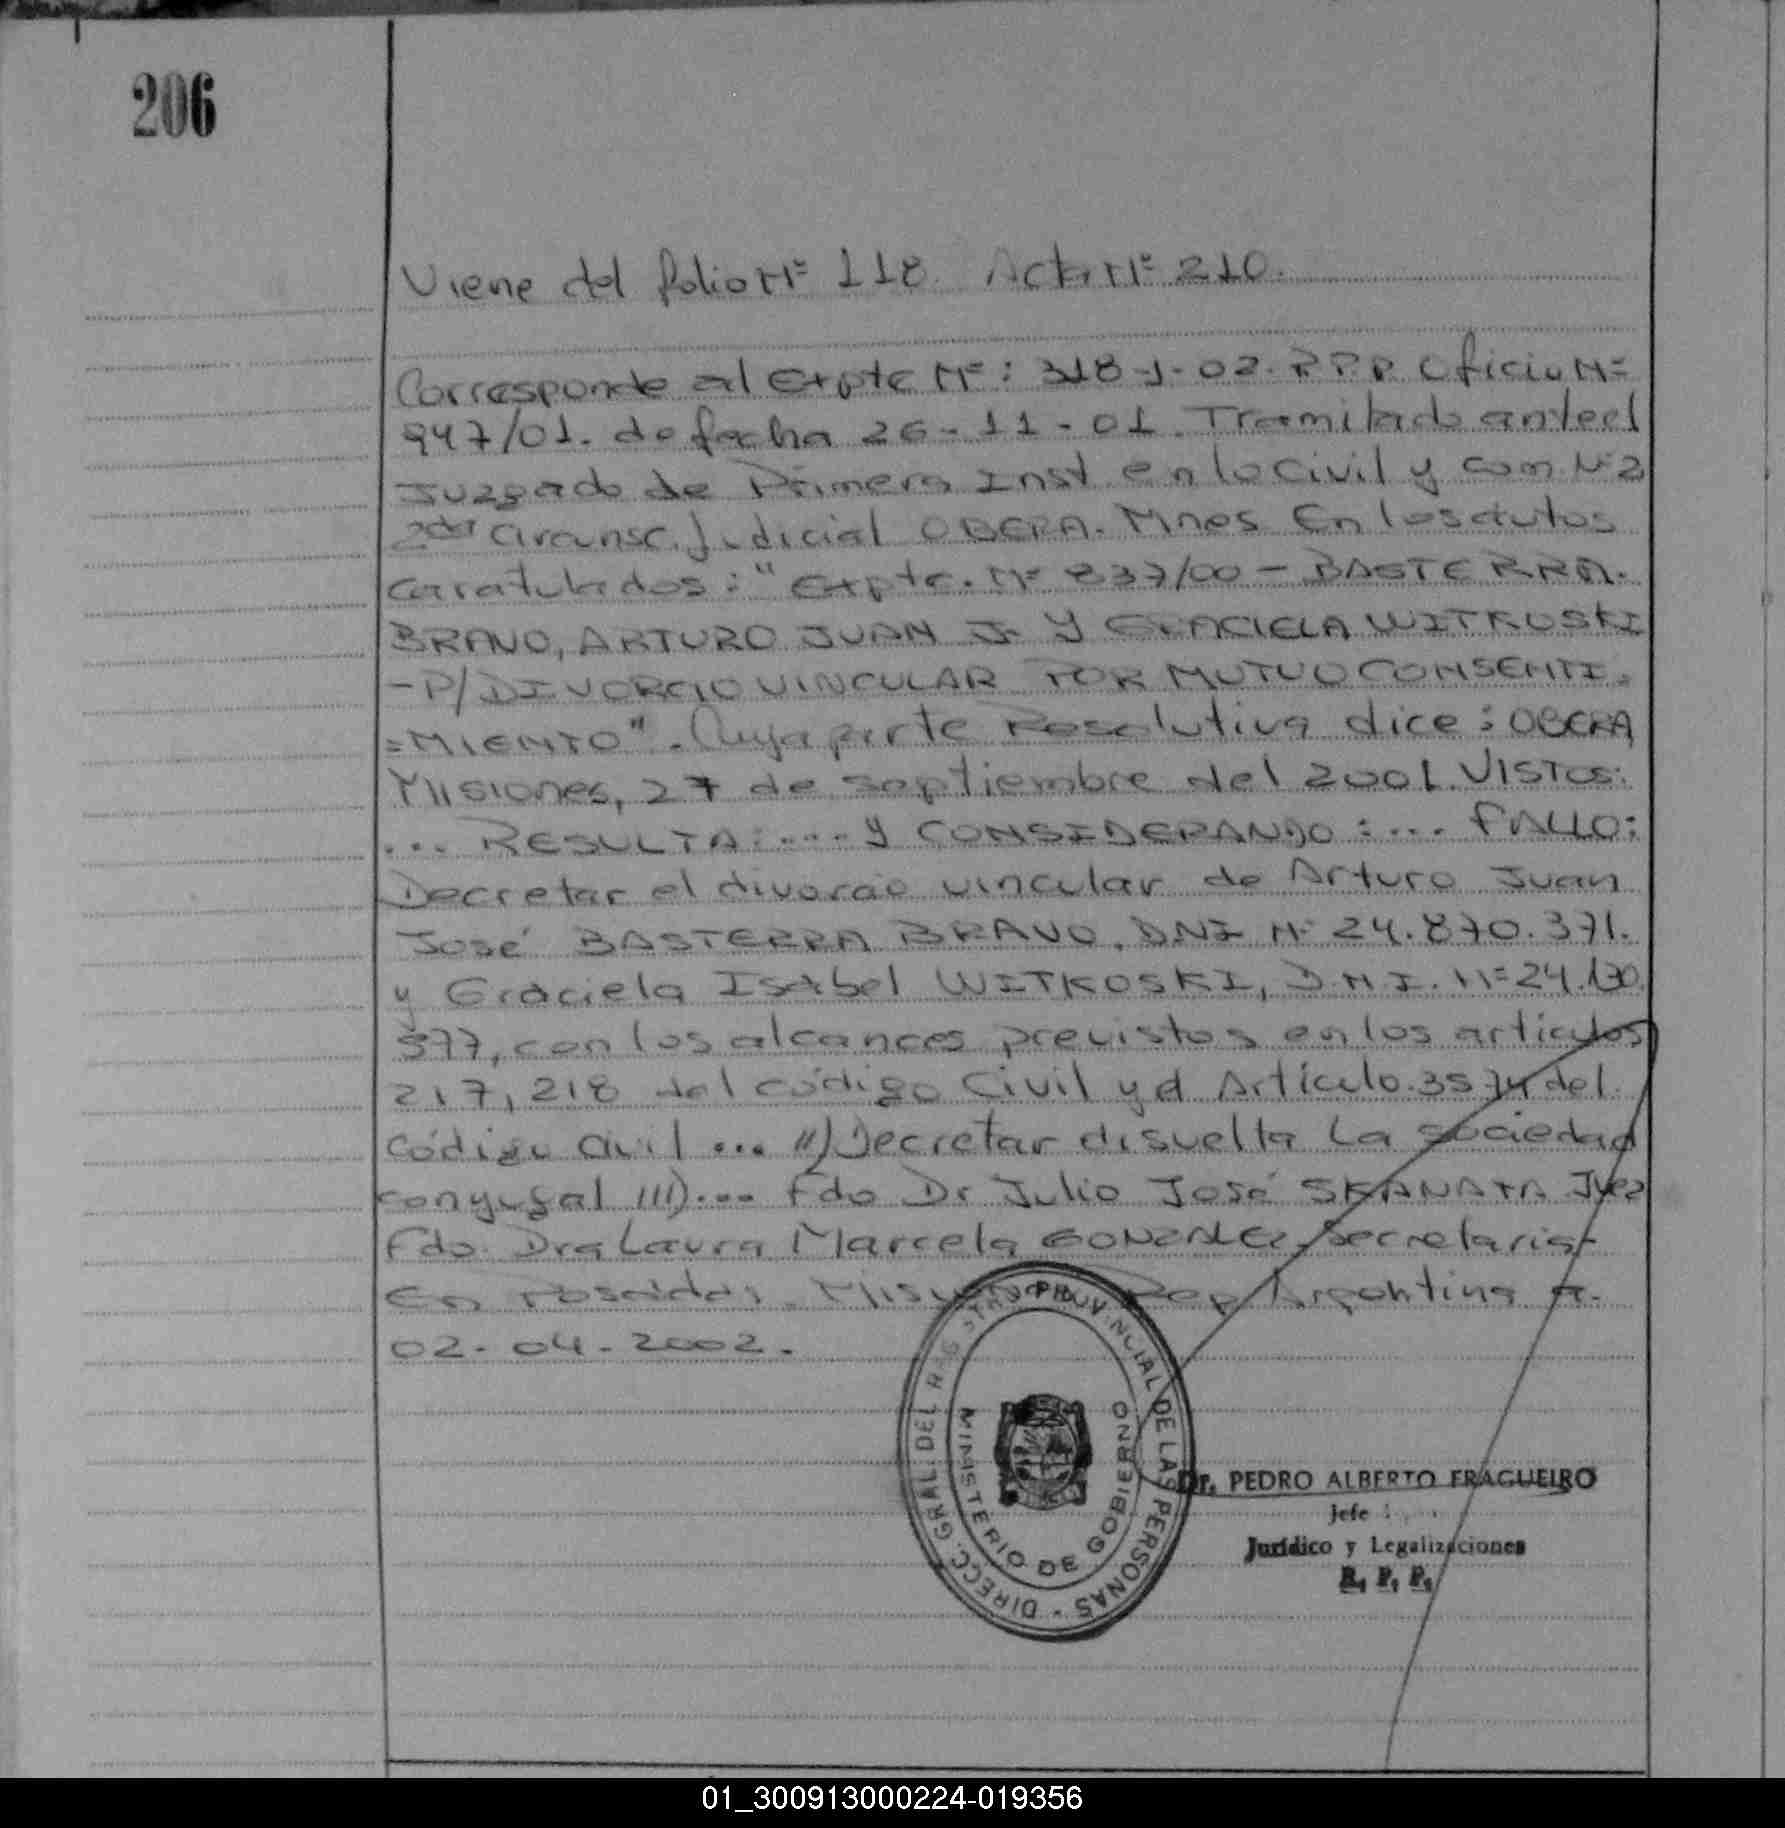 206
Viene del folio Nº 118. Acta Nº 210.
Corresponde al Expte Nº: 318-J-02. R.P.P. Oficio Nº
947/01. de fecha 26-11-01. Tramitado ante el
Juzgado de Primera Inst en lo Civil y Com. Nº 2
2da Circunsc. Judicial OBERA. Mnes En los autos
caratulados: "Expte. Nº 837/00 - BASTERRA.
BRAVO, ARTURO JUAN J. Y GRACIELA WITKOSKI
- P/ DIVORCIO VINCULAR POR MUTUO CONSENTI=
=MIENTO". Cuya parte Resolutiva dice: OBERA
Misiones, 27 de septiembre del 2001. VISTOS:
... RESULTA: .... Y CONSIDERANDO: ... FALLO:
Decretar el divorcio vincular de Arturo Juan
José BASTERRA BRAVO, DNI Nº 24.870.371.
y Graciela Isabel WITKOSKI, D.N.I. Nº 24.130.
377, con los alcances previstos en los articulos
217, 218 del código Civil y el Artículo 3574 del
Código Civil ... II) Decretar disuelta La sociedad
conyugal III) ... Fdo Dr Julio José SKANATA Juez
Fdo. Dra Laura Marcela GONZALEZ Secretaria-
En Posadas, Misiones Rep Argentina a.
02-04-2002.
DIRECC. GRAL. DEL REGISTRO PROVINCIAL DE LAS PERSONAS -
MINISTERIO DE GOBIERNO
Dr. PEDRO ALBERTO FRAGUEIRO
Jefe
Jurídico y Legalizaciones
R. P. P.
01_300913000224-019356